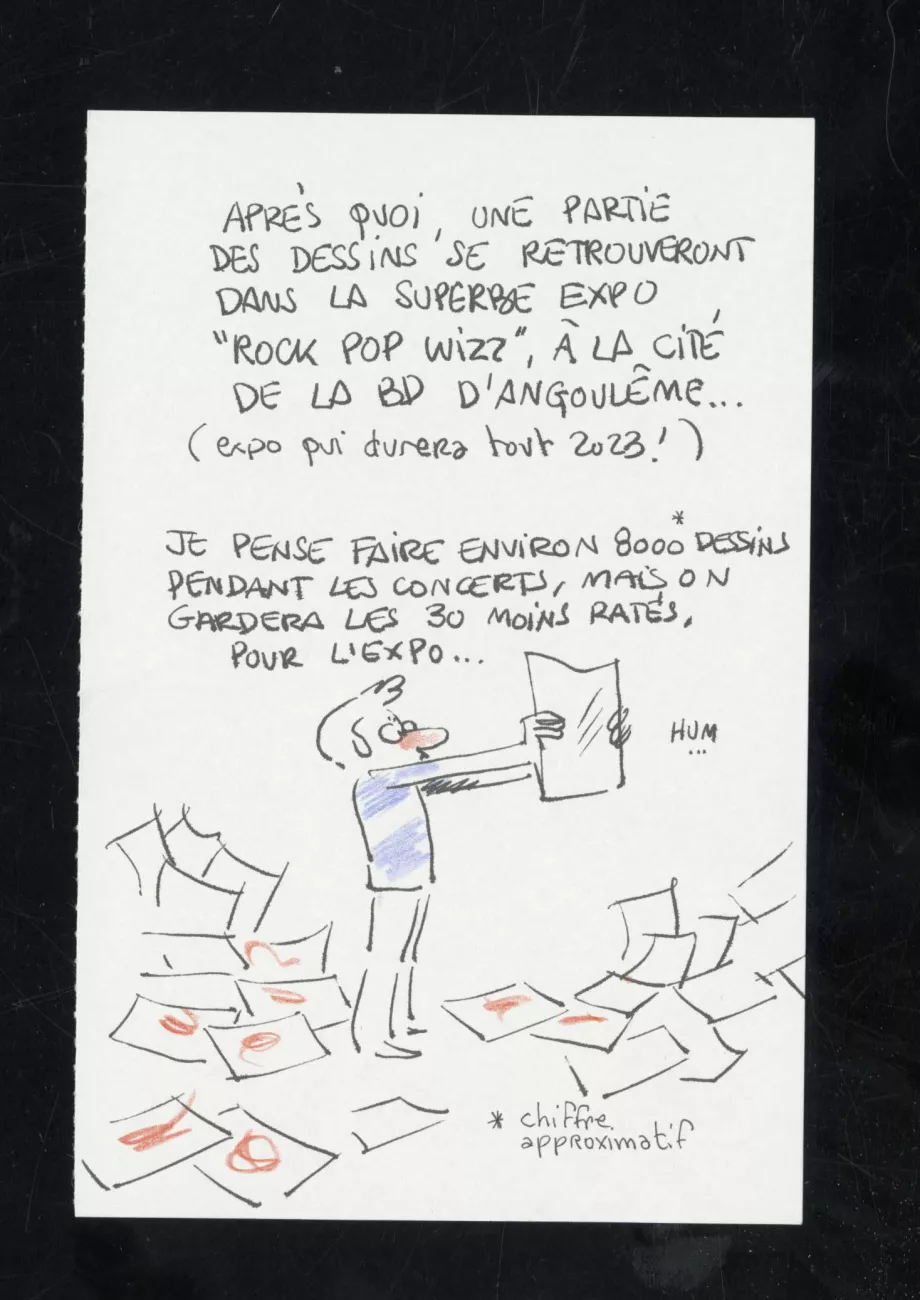 APRÈS QUOI, UNE PARTIE
DES DESSINS SE RETROUVERONT
DANS LA SUPERBE EXPO
"ROCK POP WIZZ", À LA CITÉ
DE LA BD D'ANGOULÊME...
(expo qui durera tout 2023!)
JE PENSE FAIRE ENVIRON 8000* DESSINS
PENDANT LES CONCERTS, MAIS ON
GARDERA LES 30 MOINS RATÉS,
POUR L'EXPO...
HUM
...
* chiffre
approximatif